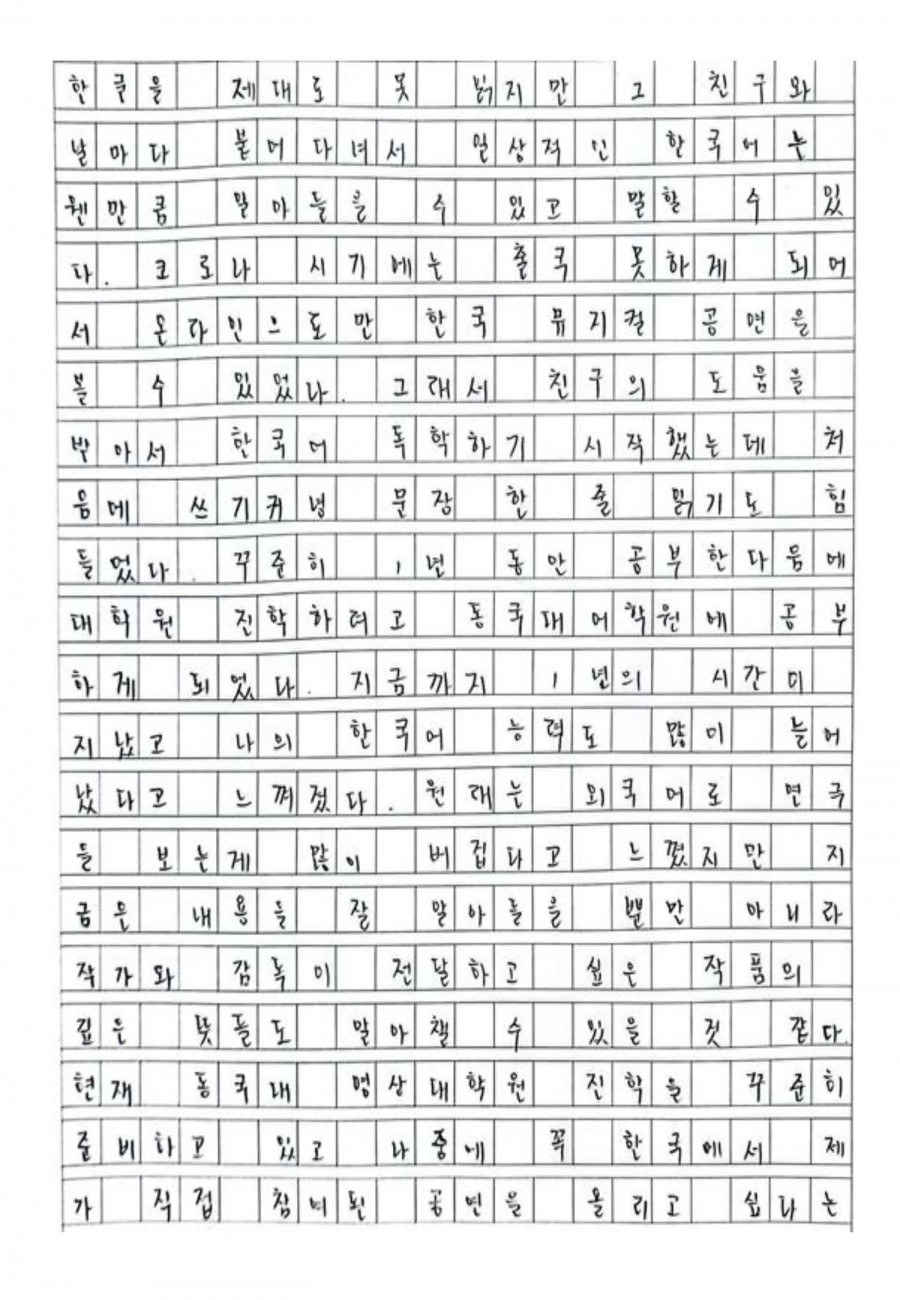 한글을 제대로 못 읽지만 그 친구와
날마다 붙어다녀서 일상적인 한국어는
웬만큼 알아들을 수 있고 말할 수 있
다. 코로나 시기에는 출국 못하게 되어
서 온라인으로만 한국 뮤지컬 공연을
볼 수 있었다. 그래서 친구의 도움을
받아서 한국어 독학하기 시작했는데 처
음에 쓰기커녕 문장 한 줄 읽기도 힘
들었다. 꾸준히 1년 동안 공부한다음에
대학원 진학하려고 동국대어학원에 공부
하게 되었다. 지금까지 1년의 시간이
지났고 나의 한국어 능력도 많이 늘어
났다고 느껴졌다. 원래는 외국어로 연극
을 보는게 많이 버겁다고 느꼈지만 지
금은 내용을 잘 알아들을 뿐만 아니라
작가와 감독이 전달하고 싶은 작품의
깊은 뜻들도 알아챌 수 있을 것 같다.
현재 동국대 영상대학원 진학을 꾸준히
준비하고 있고 나중에 꼭 한국에서 제
가 직접 참여된 공연을 올리고 싶다는